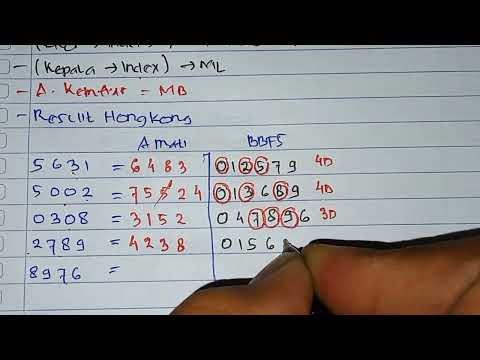 - (Kepala → Index) → ML
- A. Kemaur = MB
- Result Hongkong
Amati BBFS
5631 = 6483 012579 4D
5002 = 75524 013689 4D
0308 = 3152 047896 3D
2789 = 4238 0156
8976 =